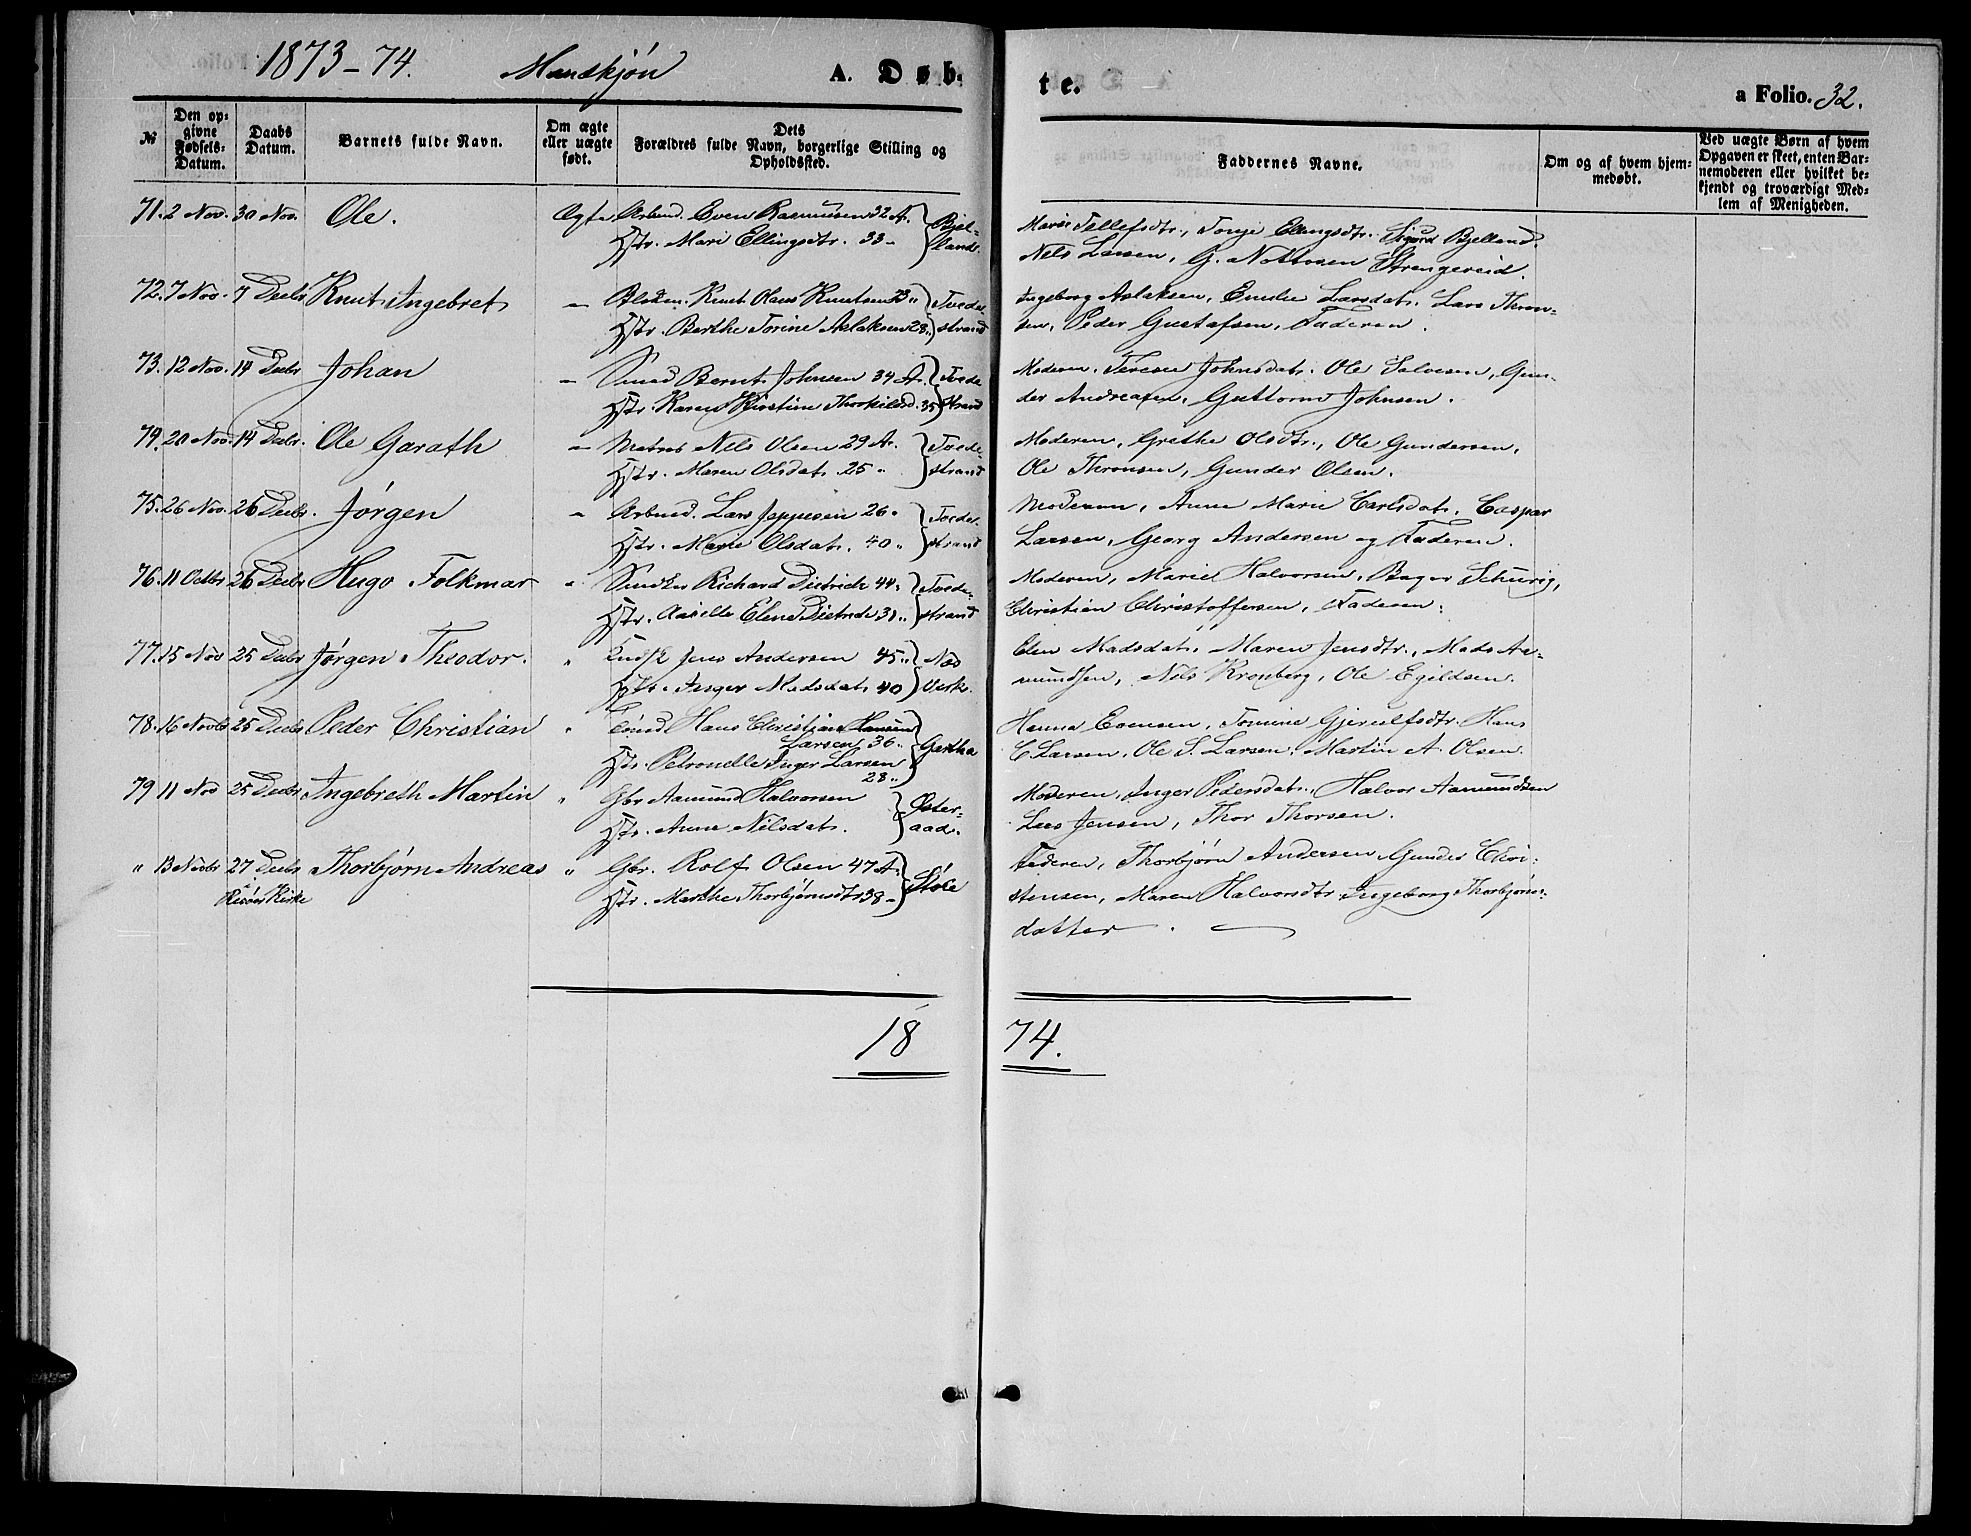 1873-74. Mandkjøn A. Døb-
te.
a Folio. 32.
№
Den op-
givne
Fødsels-
Datum.
Daabs
Datum.
Barnets fulde Navn.
Om ægte
eller uægte
født.
Dets
Forældres fulde Navn, borgerlige Stilling og
Opholdssted.
Faddernes Navne.
Om og af hvem hjem-
medøbt.
Ved uægte Børn af hvem
Opgaven er skeet, enten Bar-
nemoderen eller hvilket be-
kjendt og troværdigt Med-
lem af Menigheden.
71. 2 Nov. 30 Nov. Ole. Ægte Arbmd. Even Rasmusen 32 A. Bjel-
Hstr. Mari Ellingsdtr. 33 - land.
Marie Tellefsdtr., Tonje Ellingsdtr. Sigurd Bjelland.
Nels Larsen, G. Nottosen Strengereid.
72. 7 Nov. 7 Decbr Knut Ingebret - Knut Olaus Knutsen Tvede-
Hstr. Berthe Torine Aslaksen 28 " strand
Ingeborg Aslaksen, Emilie Larsdat. Lars Thron-
sen, Peder Gustafsen, Faderen.
73. 12 Nov. 14 Decbr Johan - Smed Bernt Johnsen 34 A. Tvede
Hstr. Karen Kirstine Thorkilsd. 35 strand
Moderen. Terese Johnsdat. Ole Salvesen, Gun-
der Andreasen, Guttorm Johnsen.
74. 20 Nov. 14 Decbr. Ole Garath - Matros Nils Olsen 29 A. Tvede-
Hstr. Maren Olsdat. 25 " strand
Moderen, Grethe Olsdtr., Ole Gundersen,
Ole Thronsen, Gunder Olsen.
75. 26 Nov. 26 Decbr. Jørgen - Arbmd. Lars Jeppesen 26 " Tvede-
Hstr. Marie Olsdat. 40 " strand
Moderen, Anne Marie Carlsdat. Caspar
Larsen, Georg Andersen og Faderen.
76. 11 Octbr 26 Decbr Hugo Folkmar " Richard Dietrich 44 " Tvede-
Hstr. Elene Dietrich strand
Moderen, Marie Halvorsen, Bager Schurig,
Christian Christoffersen, Faderen.
77. 15 Nov 25 Decbr Jørgen Theodor. " Jens Andersen 45 " Næs
Hstr. Inger Madsdat. 40 Verk.
Elen Madsdat. Maren Jensdtr., Mads Aa-
mundsen, Nils Kronberg, Ole Egildsen.
78. 16 Novbr 25 Decbr Peder Christian " Hans Christian Hansen
Larsen 36 " Gjertha
Hstr. Petronelle Inger Larsen
28 "
Hanna Evensen, Tomine Gjerulfsdtr. Hans
C Larsen, Ole S. Larsen, Martin A. Olsen.
79 11 Nov 25 Decbr Ingebreth Martin " Gbr Aamund Halvorsen Øster-
Hstr. Anne Nilsdat. aad.
Moderen, Inger Pedersdat., Halvor Aamundsen
Lars Jensen, Thor Thorsen.
" 13 Novbr 27 Decbr Thorbjørn Andreas " Gbr. Rolf Olsen 47 A.
Risøer Kirke Hstr. Marthe Thorbjørnsdtr 38 - Støle
Faderen, Thorbjørn Andersen Gunder Chri-
stensen, Maren Halvorsdtr. Ingeborg Thorbjørns-
datter.
18 74.